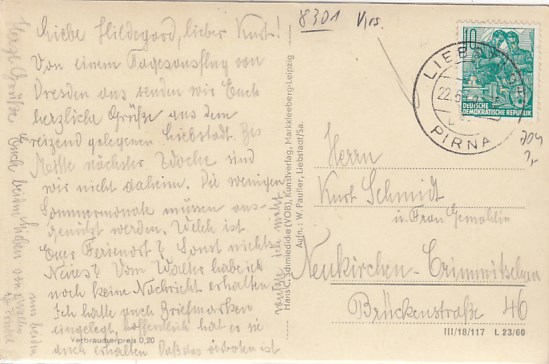 8301 Krs.
Liebe Hildegard, lieber Kurt!
Von einem Tagesausflug von
Dresden aus senden wir Euch
herzliche Grüße aus dem
reizend gelegenen Liebstadt. Bis
Mitte nächster Woche sind
wir nicht daheim. Die wenigen
Sommermonate müssen aus-
genützt werden. Welch ist
Euer Ferienort? Sonst nichts
Neues? Vom Walter habe ich
noch keine Nachricht erhalten.
Ich hatte auch Briefmarken
eingelegt, hoffentlich hat er sie
auch erhalten. Daß das verboten ist
wußte ich nicht.
Herzl. Grüße Euch beiden
Verbraucherpreis 0,20
Hans C. Schmiedicke (VOB), Kunstverlag, Markkleeberg-Leipzig
Aufn.: W. Paufler, Liebstedt/Sa.
10
DEUTSCHE
DEMOKRATISCHE REPUBLIK
LIEBSTADT
22.6.
PIRNA
Herrn
Kurt Schmidt
u. Frau Gemahlin
Neukirchen-Crimmitschau
Brückenstraße 46
III/18/117 L 23/60